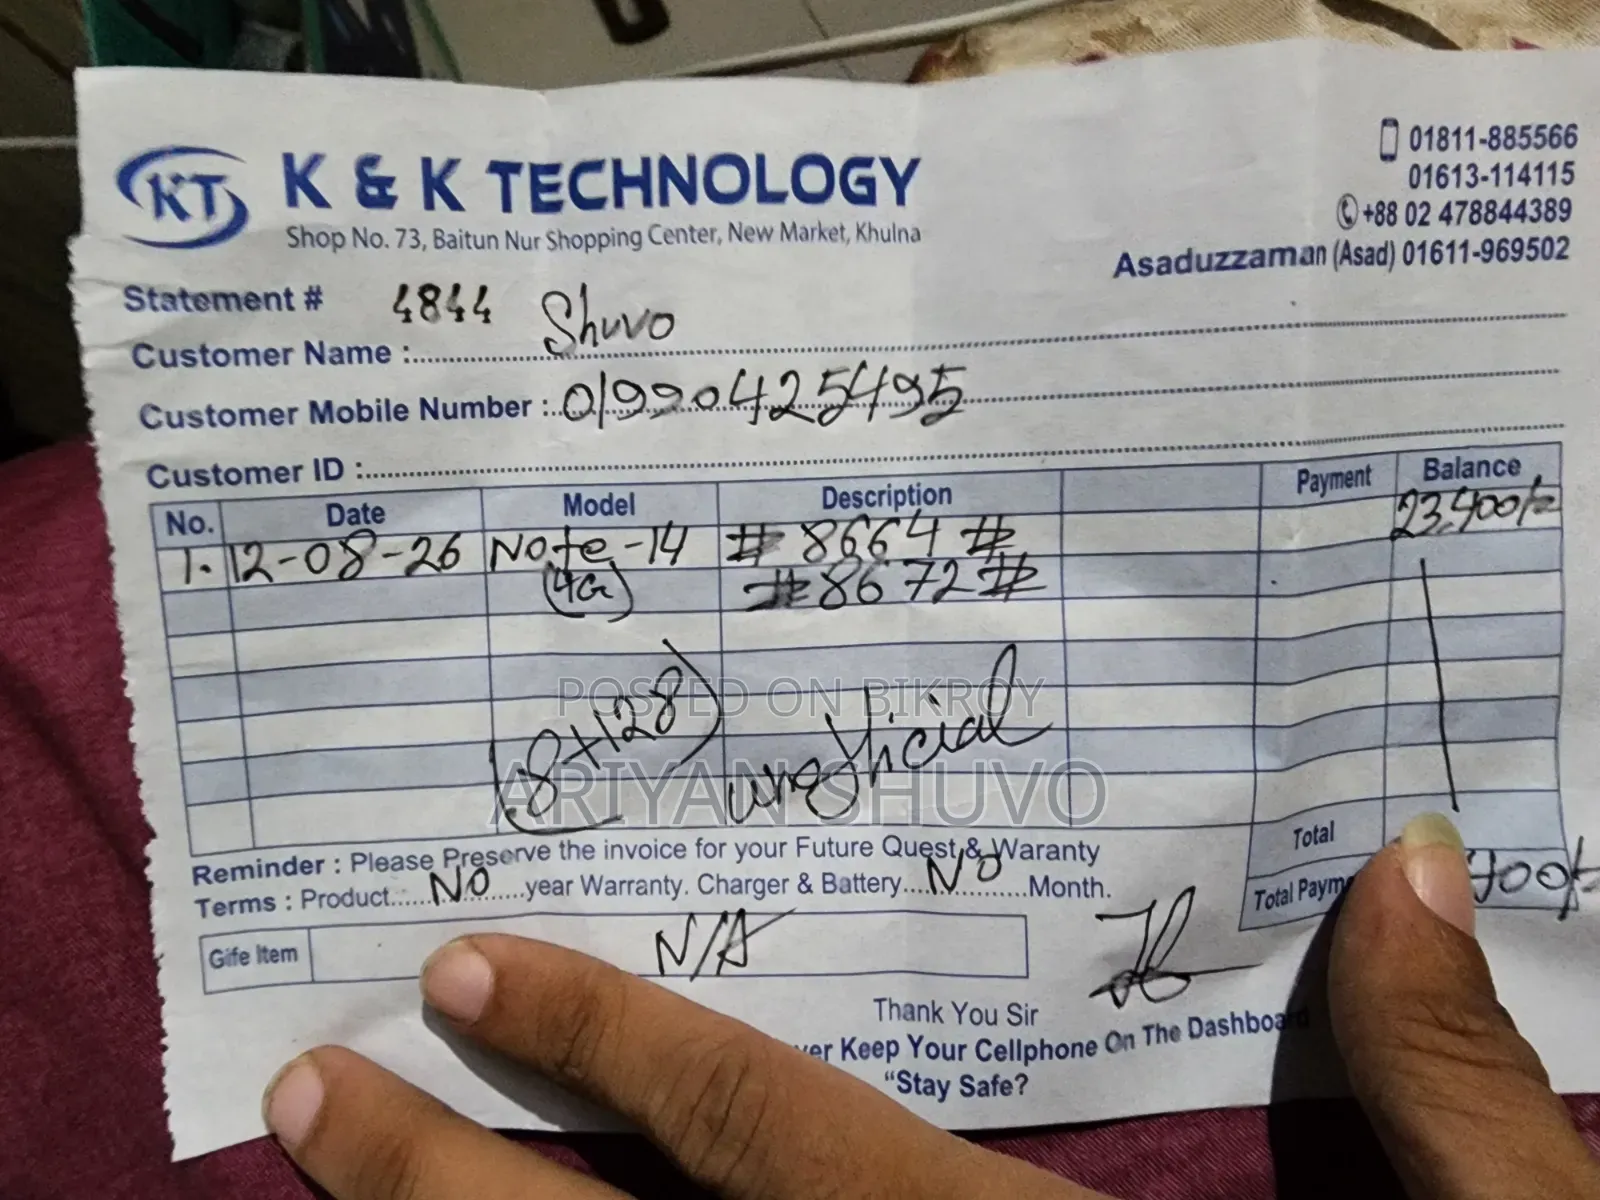 KT K & K TECHNOLOGY
Shop No. 73, Baitun Nur Shopping Center, New Market, Khulna
01811-885566
01613-114115
+88 02 478844389
Asaduzzaman (Asad) 01611-969502
Statement # 4844
Customer Name : Shuvo
Customer Mobile Number : 01990425495
Customer ID :
No. Date Model Description Payment Balance
1. 12-08-26 Note-14 # 8664 # 23,400/=
(4G) # 8672 #
(8+128) unofficial
POSTED ON BIKROY
ARIYAN SHUVO
Total
Reminder : Please Preserve the invoice for your Future Quest & Waranty
Terms : Product......NO.....year Warranty. Charger & Battery....NO..........Month.
Total Paym 400/=
Gife Item N/A
Thank You Sir
ver Keep Your Cellphone On The Dashboard
"Stay Safe?